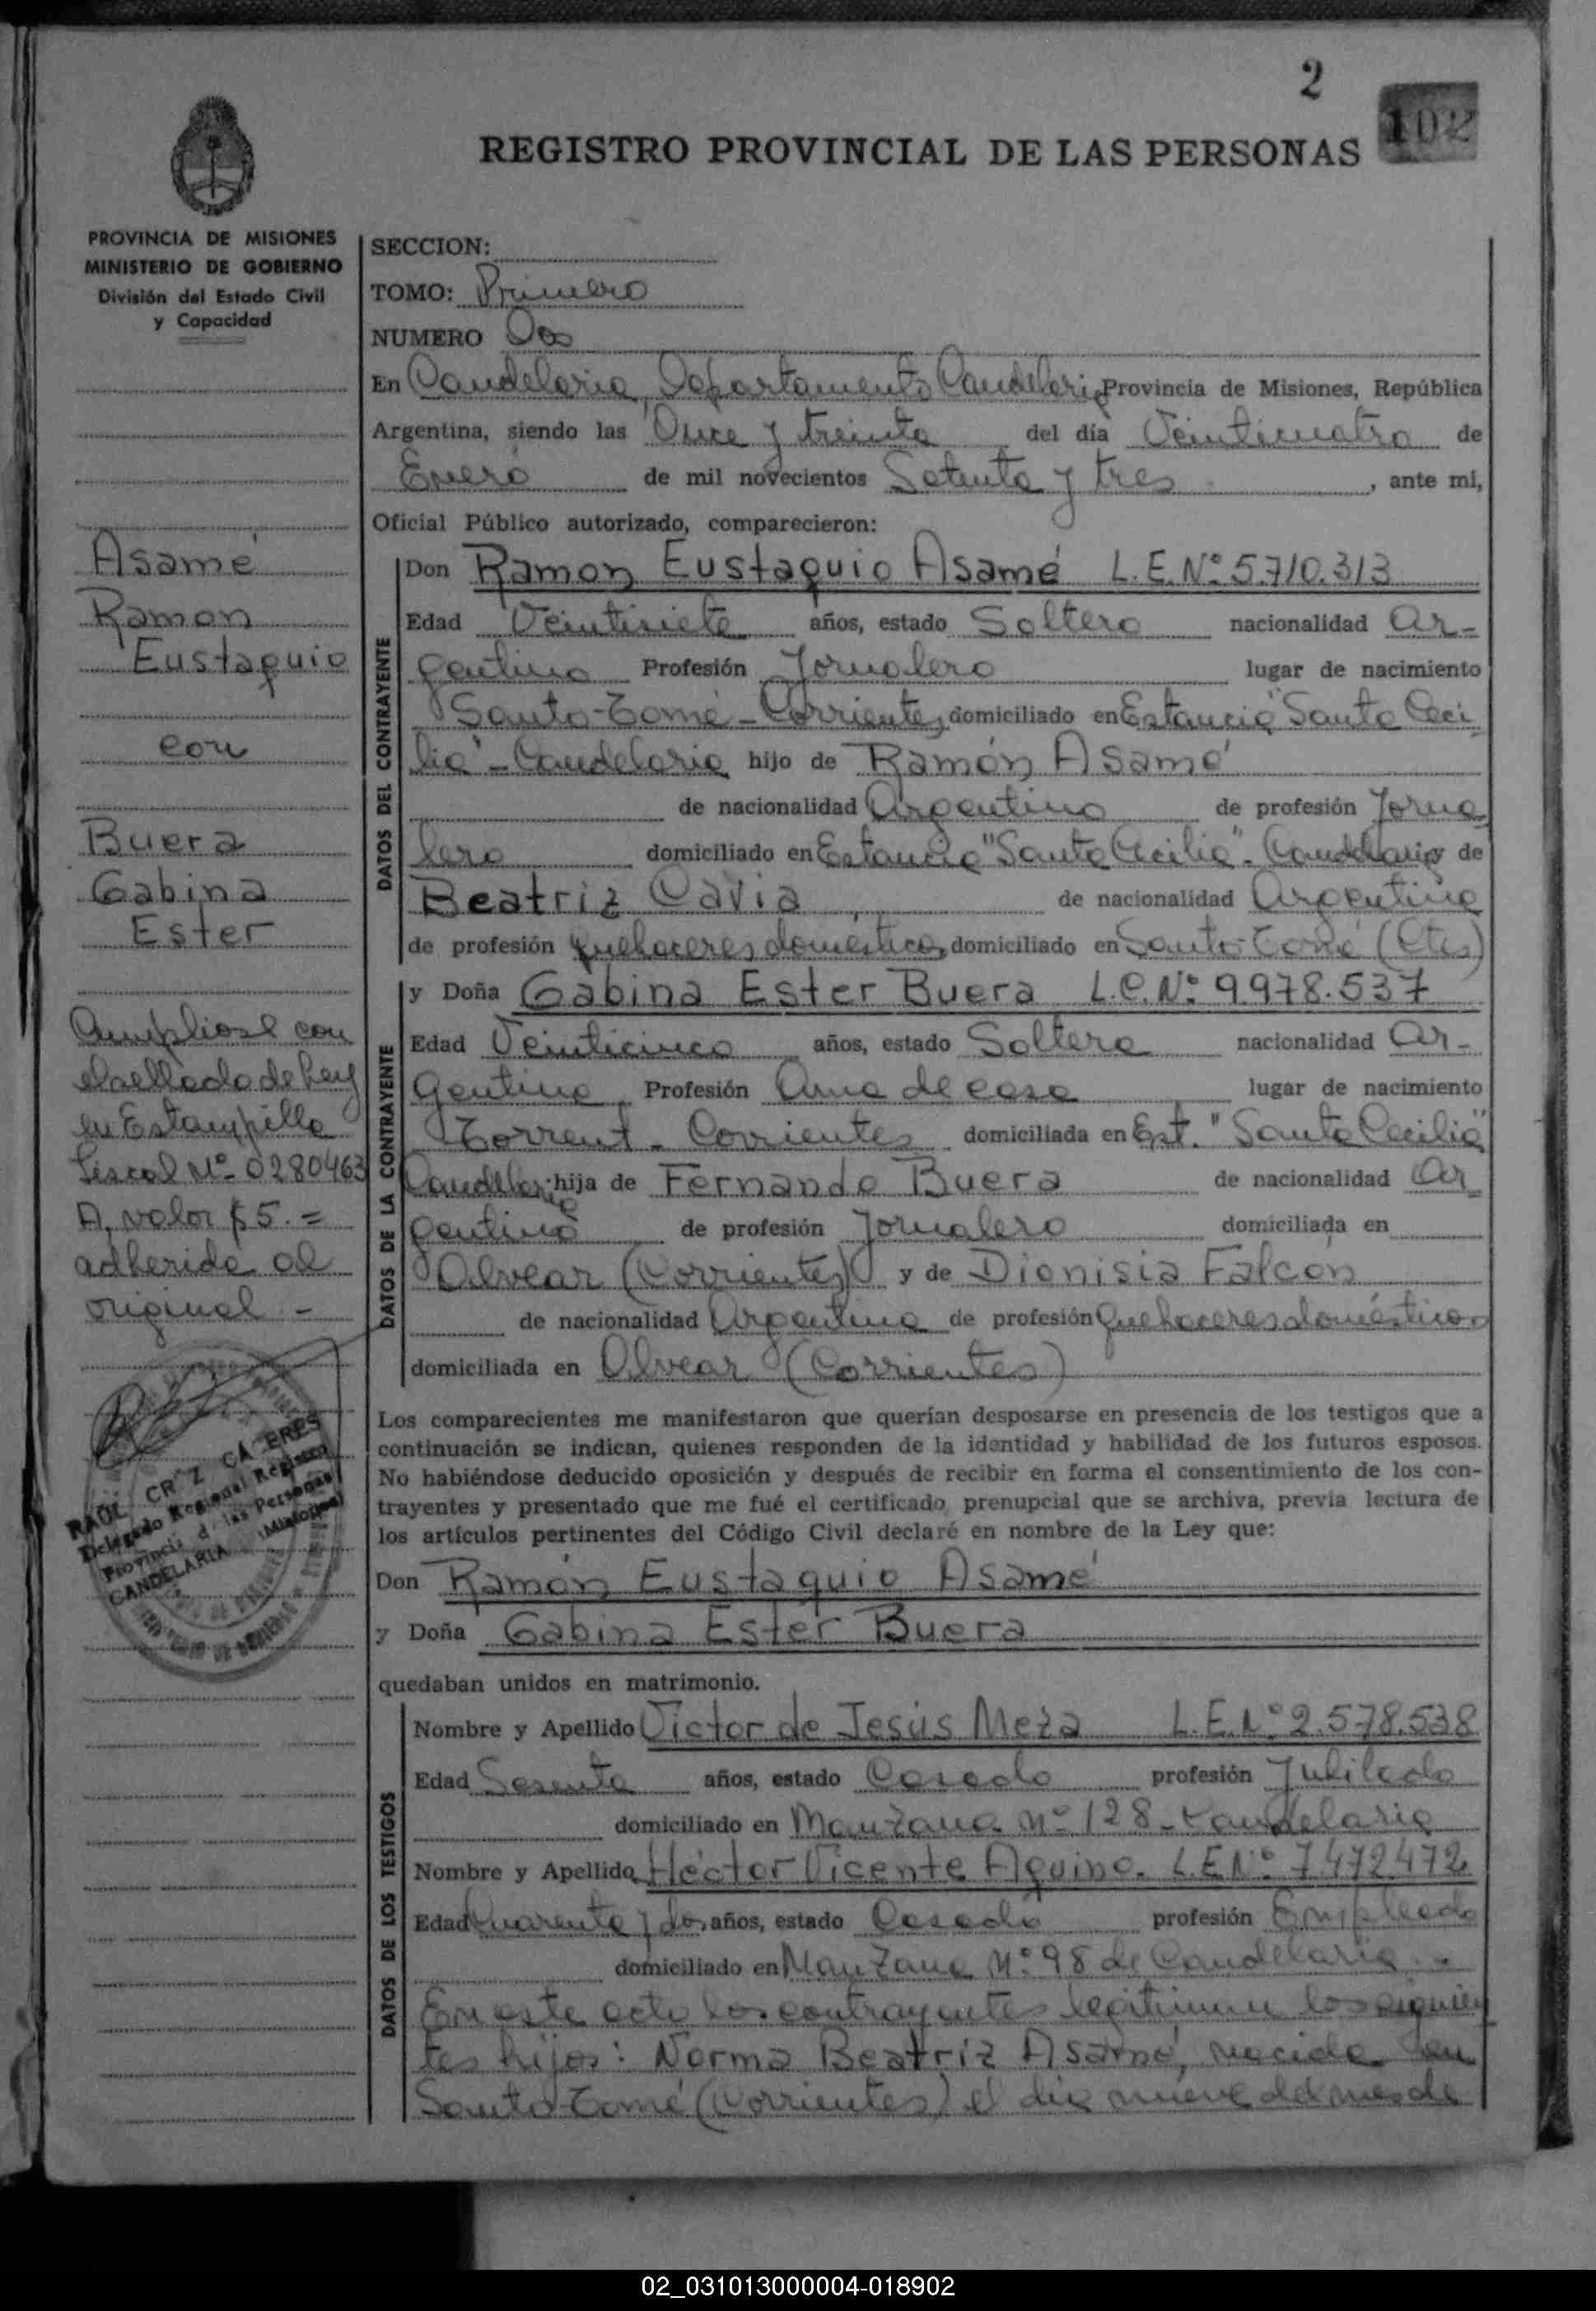 2
102
REGISTRO PROVINCIAL DE LAS PERSONAS
PROVINCIA DE MISIONES
MINISTERIO DE GOBIERNO
División del Estado Civil
y Capacidad
Asamé
Ramon
Eustaquio
con
Buera
Gabina
Ester
Cumpliose con
el sellado de Ley
en Estampilla
Fiscal Nº 0280463
A, valor $5.=
adherida al
original -
RAUL CR Z CA ERES
Delegado Regional Registro
Provincia d las Personas
CANDELARIA (Misiones)
SECCION:
TOMO: Primero
NUMERO Dos
En Candelaria, Departamento Candelaria Provincia de Misiones, República
Argentina, siendo las Once y treinta del día Veinticuatro de
Enero de mil novecientos Setenta y tres , ante mi,
Oficial Público autorizado, comparecieron:
DATOS DEL CONTRAYENTE
Don Ramon Eustaquio Asamé L.E.Nº 5.710.313
Edad Veintisiete años, estado Soltero nacionalidad Ar-
gentino Profesión Jornalero lugar de nacimiento
Santo-Tomé-Corrientes, domiciliado en Estancia "Santa Ceci
lia"-Candelaria hijo de Ramón Asamé
de nacionalidad Argentino de profesión Jorna
lero domiciliado en Estancia "Santa Cecilia"-Candelaria y de
Beatriz Cavia de nacionalidad Argentina
de profesión Quehaceres domésticos, domiciliado en Santo-Tomé (Ctes)
DATOS DE LA CONTRAYENTE
y Doña Gabina Ester Buera L.C.Nº 9.978.537
Edad Veinticinco años, estado Soltera nacionalidad Ar-
gentina Profesión Ama de casa lugar de nacimiento
Torrent - Corrientes domiciliada en Est. "Santa Cecilia"
Candelaria hija de Fernando Buera de nacionalidad Ar
gentino de profesión Jornalero domiciliada en
Alvear (Corrientes) y de Dionisia Falcón
de nacionalidad Argentina de profesión Quehaceres domésticos
domiciliada en Alvear (Corrientes)
Los comparecientes me manifestaron que querían desposarse en presencia de los testigos que a
continuación se indican, quienes responden de la identidad y habilidad de los futuros esposos.
No habiéndose deducido oposición y después de recibir en forma el consentimiento de los con-
trayentes y presentado que me fué el certificado prenupcial que se archiva, previa lectura de
los artículos pertinentes del Código Civil declaré en nombre de la Ley que:
Don Ramón Eustaquio Asamé
y Doña Gabina Ester Buera
quedaban unidos en matrimonio.
DATOS DE LOS TESTIGOS
Nombre y Apellido Victor de Jesús Meza L.E.Nº 2.578.538
Edad Sesenta años, estado Casado profesión Jubilado
domiciliado en Manzana Nº 128-Candelaria
Nombre y Apellido Héctor Vicente Aquino. L.E.Nº 7.472.472
Edad Cuarenta y dos, años, estado Casado profesión Empleado
domiciliado en Manzana Nº 98 de Candelaria.-
En este acto los contrayentes legitiman los siguien
tes hijos: Norma Beatriz Asamé, nacida en
Santo-Tomé (Corrientes) el día nueve del mes de
02_031013000004-018902